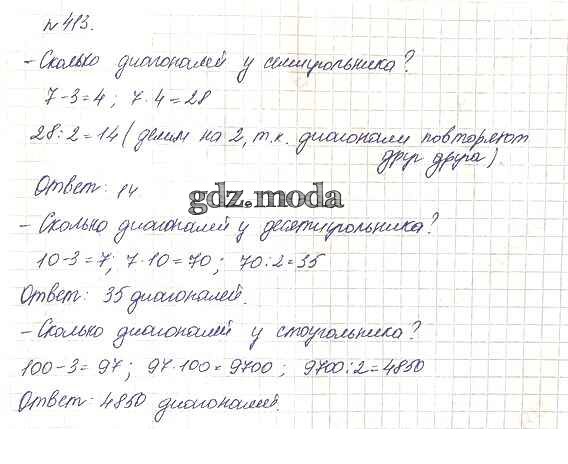 № 413.
- Сколько диагоналей у семиугольника?
7-3=4; 7·4=28
28:2=14 (делим на 2, т.к. диагонали повторяют
друг друга).
Ответ: 14
gdz.moda
- Сколько диагоналей у десятиугольника?
10-3=7; 7·10=70; 70:2=35
Ответ: 35 диагоналей.
- Сколько диагоналей у стоугольника?
100-3=97; 97·100=9700; 9700:2=4850
Ответ: 4850 диагоналей.